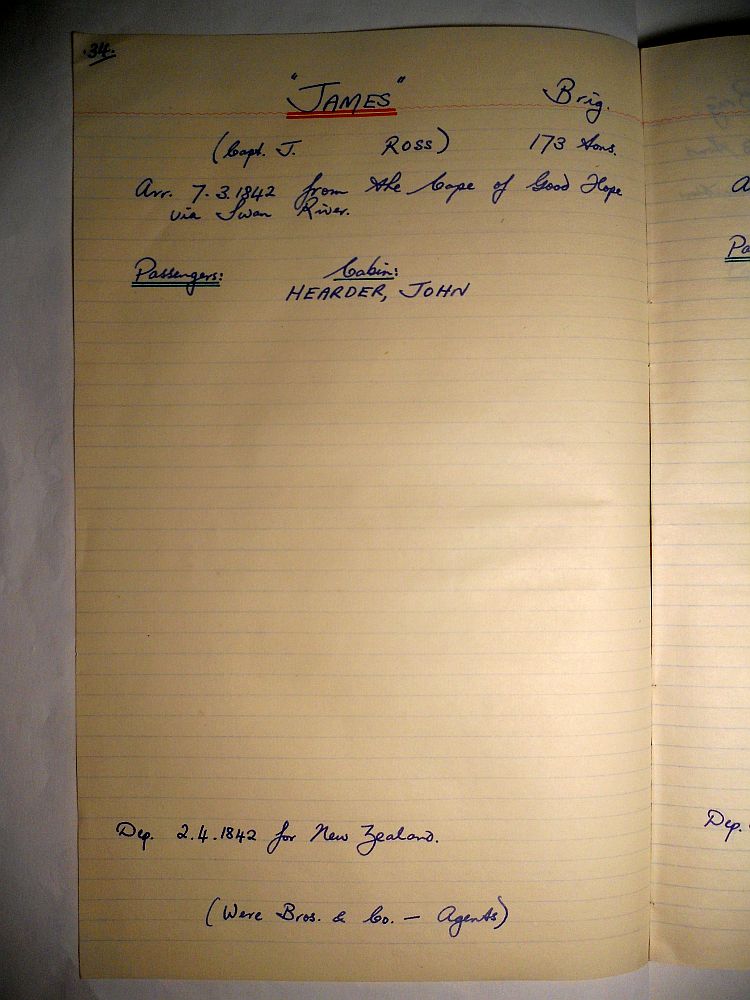 34.
"JAMES" Brig.
(Capt. J. ROSS) 173 tons.
Arr. 7.3.1842 from the Cape of Good Hope
via Swan River.
Passengers: Cabin:
HEARDER, JOHN
Dep. 2.4.1842 for New Zealand.
(Were Bros. & Co. — Agents)
A
Pa
Dep.